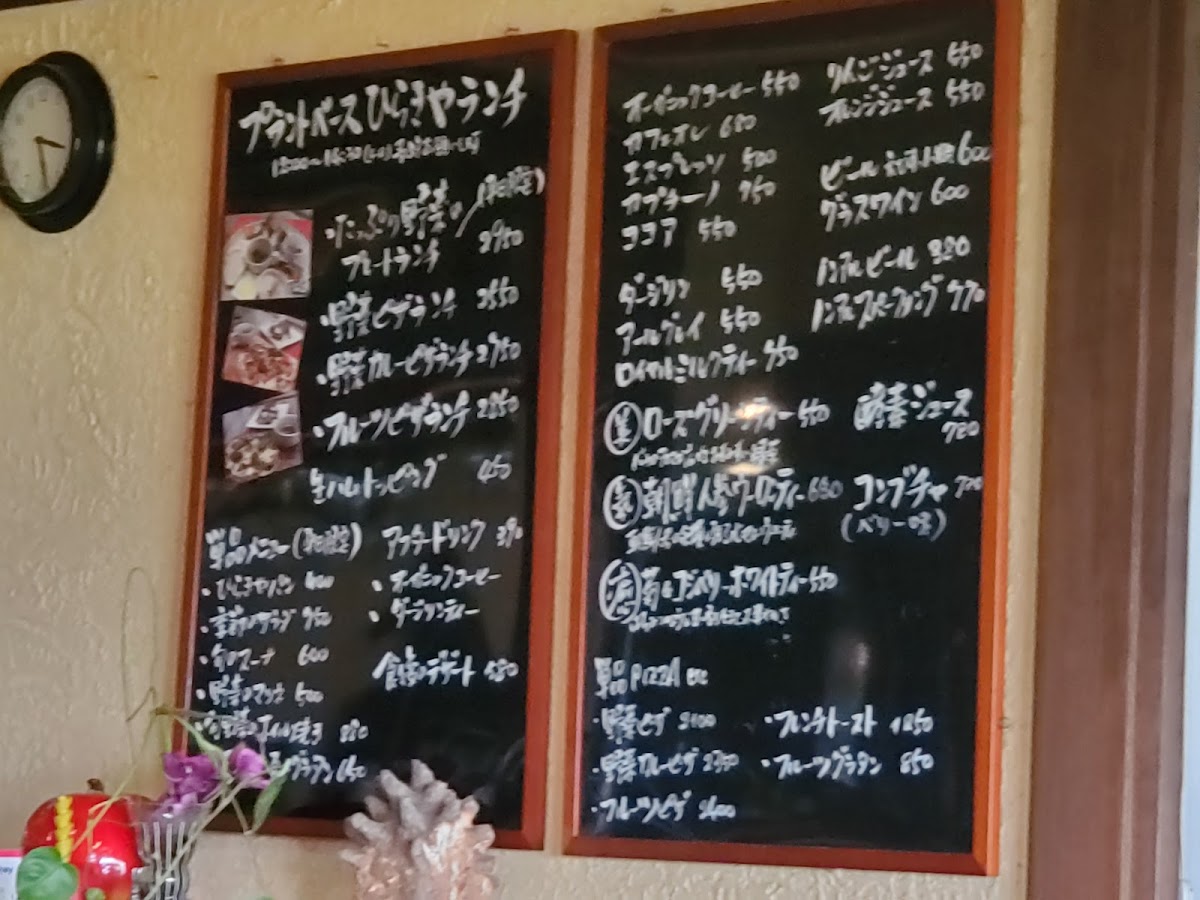 プラントベースひらきやランチ
たっぷり野菜の
プレートランチ 2950
・野菜ピザランチ 2550
・野菜カレーピザランチ 2750
・フルーツピザランチ 2850
生ハムトッピング 450
単品メニュー
・ひらきやパン 400
・旬のスープ 600
・野菜のマリネ 500
880
アフタードリンク 390
・オーガニックコーヒー
・ダージリンティー
食後のデザート 480
オーガニックコーヒー 550
カフェオレ 680
エスプレッソ 500
カプチーノ 750
ココア 550
ダージリン 550
アールグレイ 550
ロイヤルミルクティー 750
美 ローズグリーンティー 550
朝鮮人参ウーロンティー 680
菊&ゴジベリーホワイトティー 550
りんごジュース 550
オレンジジュース 550
ビール 600
グラスワイン 600
ノンアルビール 880
ノンアルスパークリング 770
酵素ジュース
780
コンブチャ
(ベリー味)
単品PIZZA etc
・野菜ピザ 2100
・野菜カレーピザ 2350
・フルーツピザ 2400
・フレンチトースト 1250
・フルーツグラタン 850